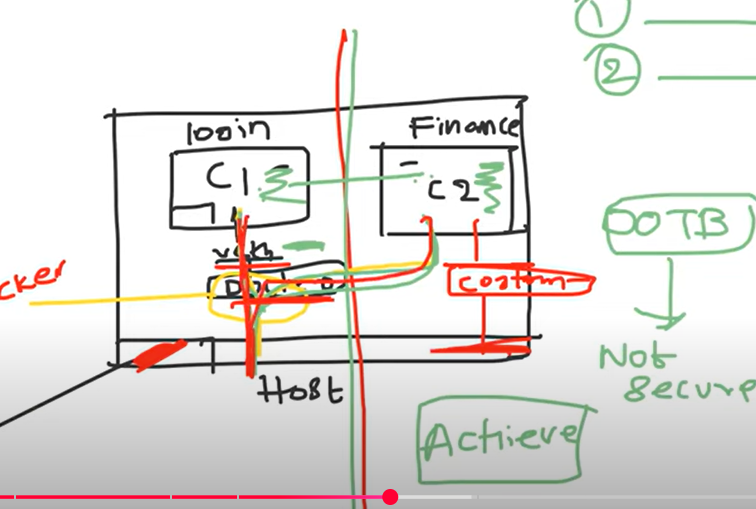 1
2
login
Finance
C1
C2
veth
cker
Custom
Host
OOTB
Not
secure
Achieve